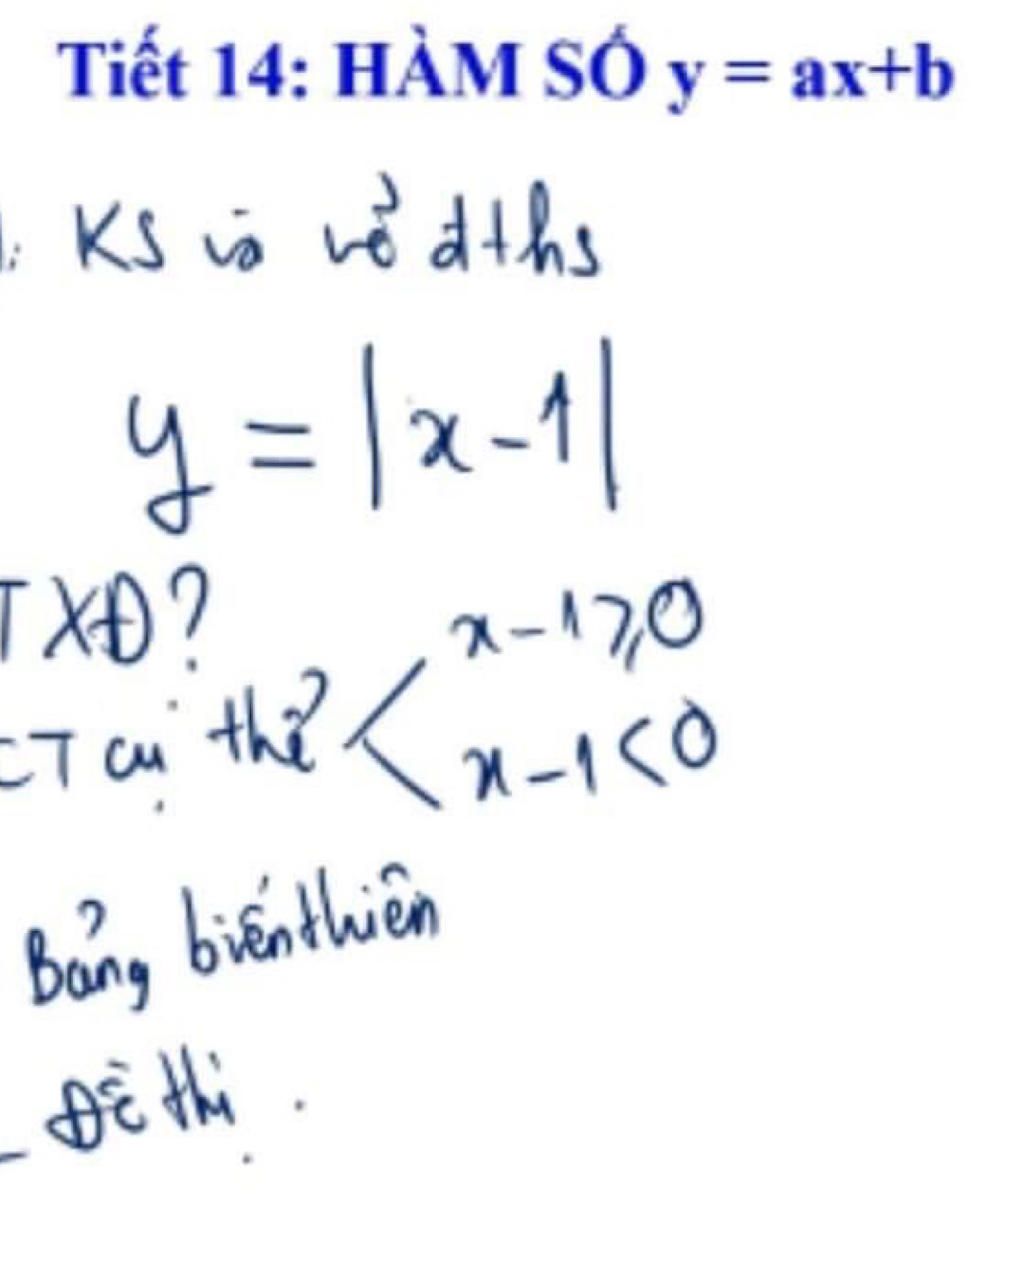 Tiết 14: HÀM SỐ y = ax+b
KS và vẽ đths
y = |x-1|
TXĐ?
CT cụ thể < x-1⩾0
x-1<0
Bảng biến thiên
- Đồ thị.